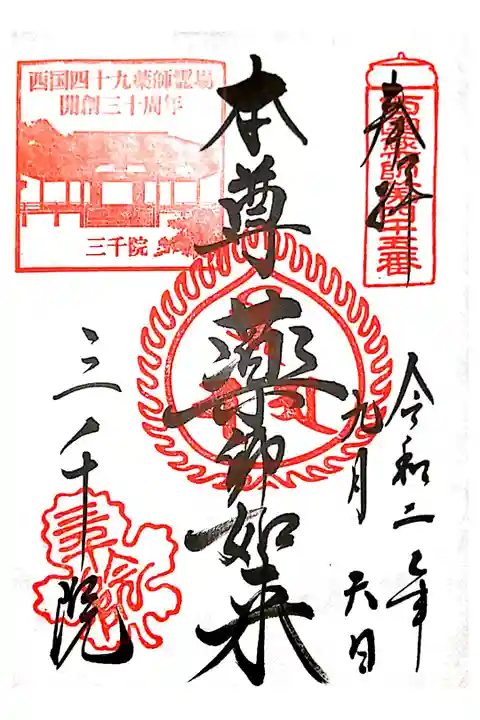 奉拝
西国薬師第四十五番
令和二年
九月六日
本尊薬師如来
西国四十九薬師霊場
開創三十周年
三千院
三千院